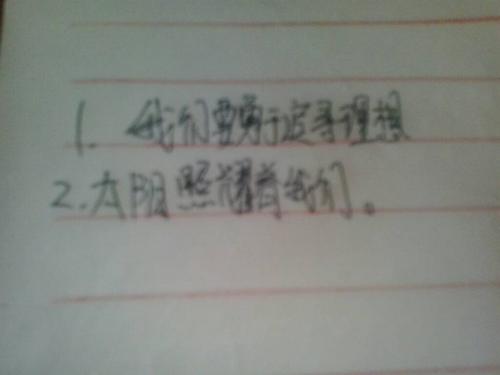 1. 我们要勇于追寻理想
2. 太阳照耀着我们。